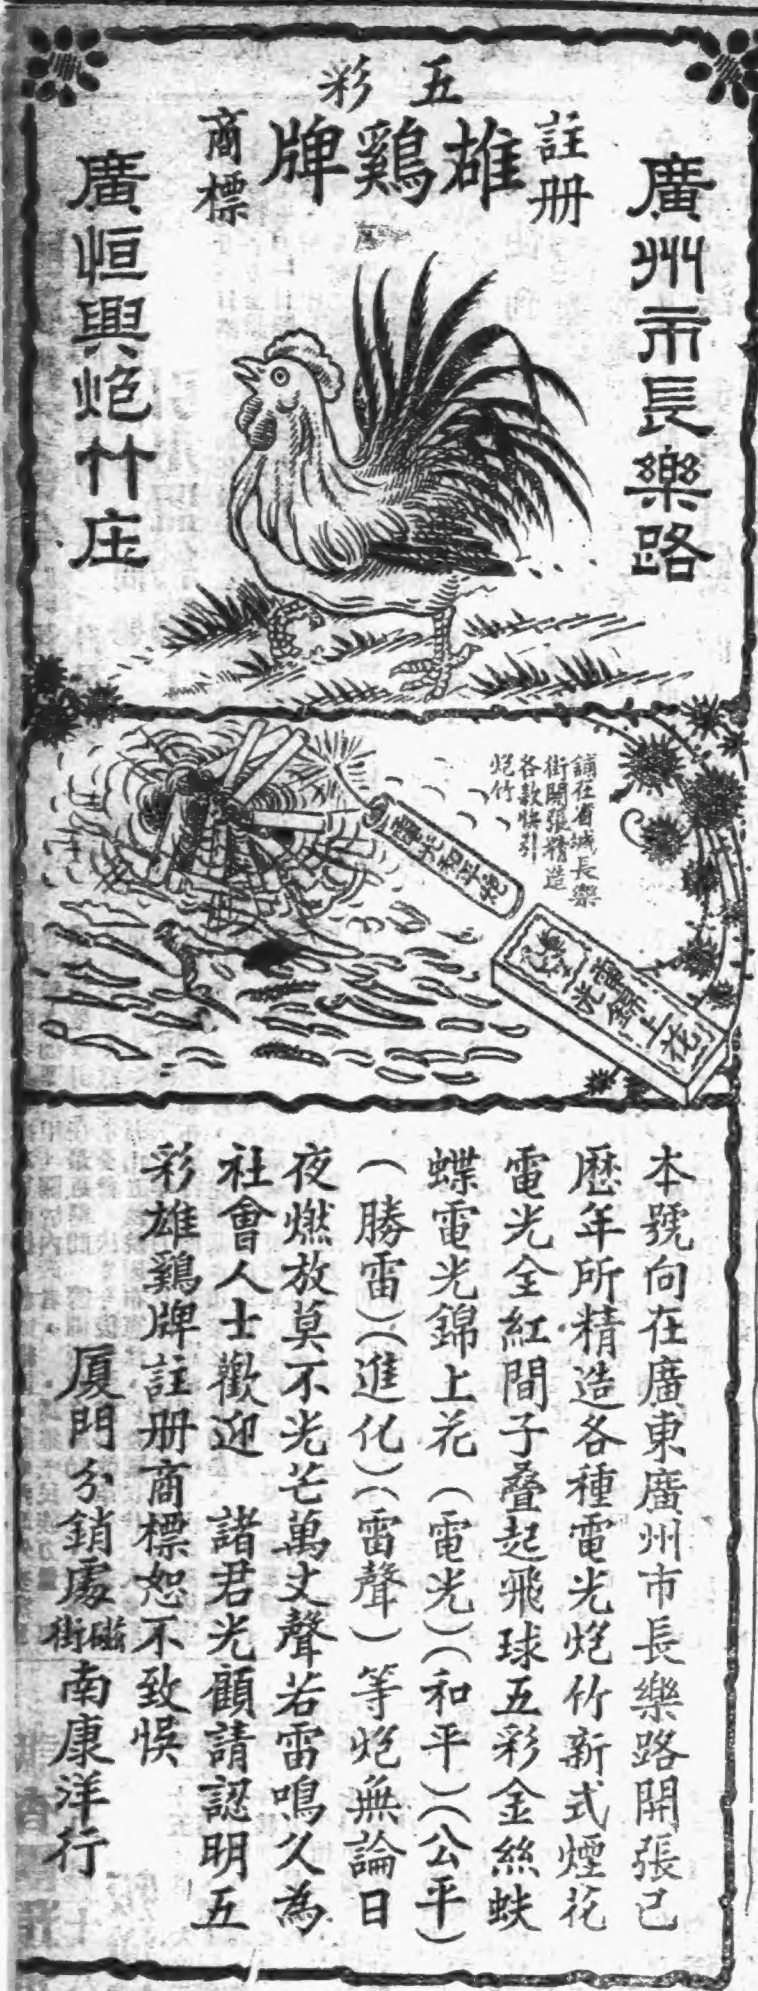 五彩
雄鷄牌
註册
商標
廣州市長樂路
廣恒興炮竹庄
鋪在省城長樂
街開張精造
各款快引
炮竹
電光和平炮
電光錦上花
本號向在廣東廣州市長樂路開張已
歷年所精造各種電光炮竹新式煙花
電光全紅間子叠起飛球五彩金絲蚨
蝶電光錦上花(電光)(和平)(公平)
(勝雷)(進化)(雷聲)等炮無論日
夜燃放莫不光芒萬丈聲若雷鳴久為
社會人士歡迎 諸君光顧請認明五
彩雄鷄牌註册商標恕不致悮
厦門分銷處磁街南康洋行